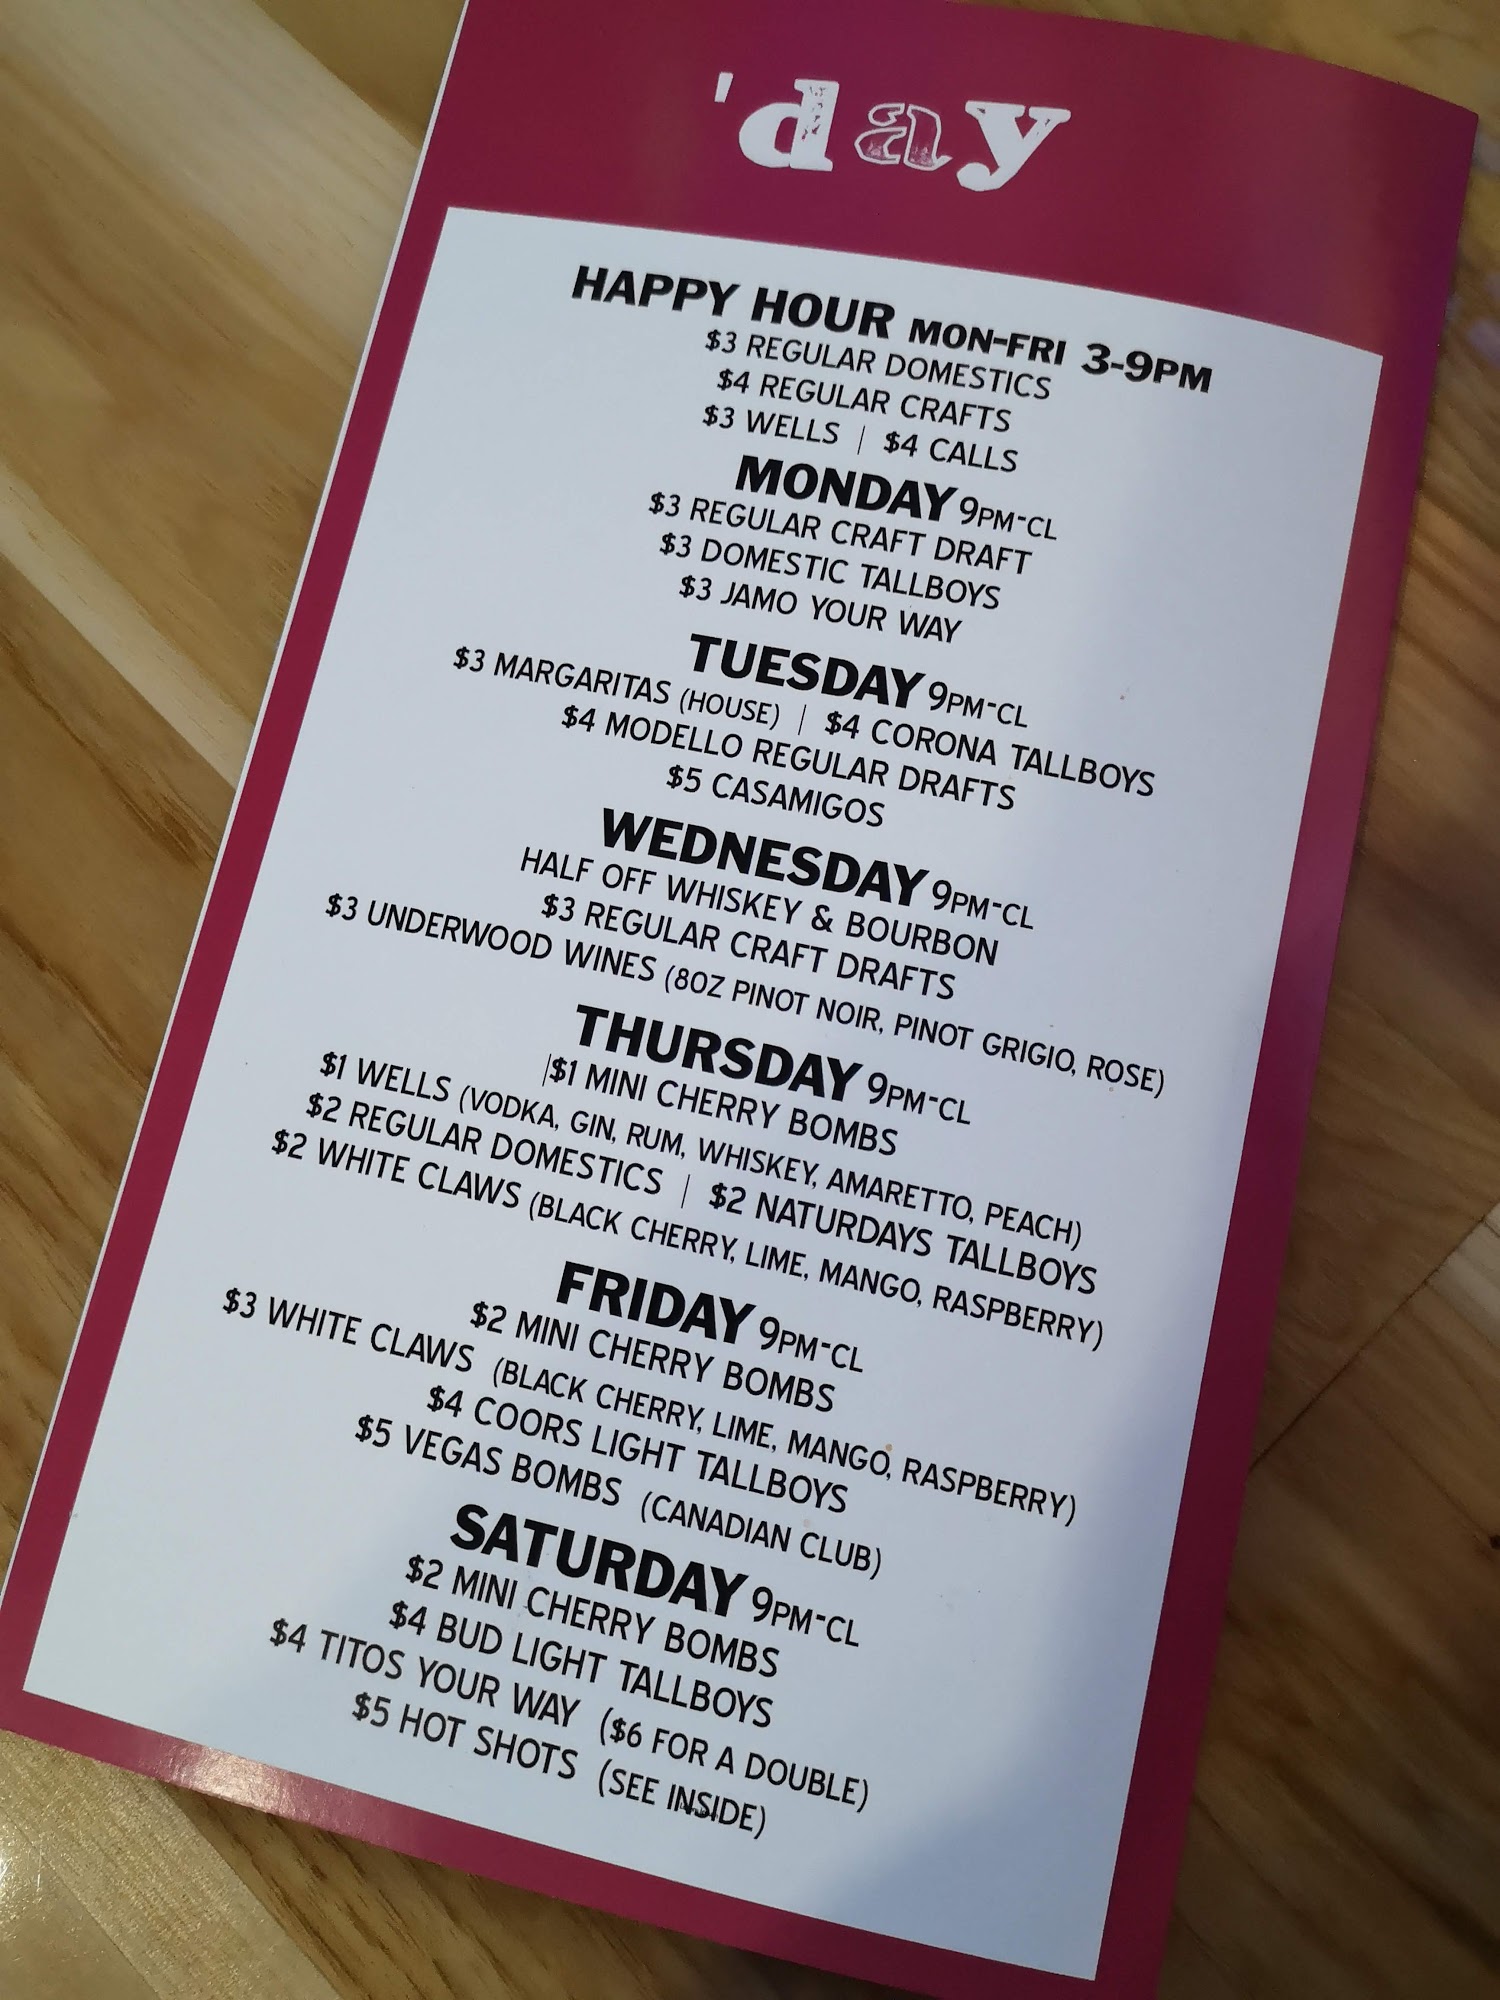 'day
HAPPY HOUR MON-FRI 3-9PM
$3 REGULAR DOMESTICS
$4 REGULAR CRAFTS
$3 WELLS | $4 CALLS
MONDAY 9PM-CL
$3 REGULAR CRAFT DRAFT
$3 DOMESTIC TALLBOYS
$3 JAMO YOUR WAY
TUESDAY 9PM-CL
$3 MARGARITAS (HOUSE) | $4 CORONA TALLBOYS
$4 MODELLO REGULAR DRAFTS
$5 CASAMIGOS
WEDNESDAY 9PM-CL
HALF OFF WHISKEY & BOURBON
$3 REGULAR CRAFT DRAFTS
$3 UNDERWOOD WINES (8OZ PINOT NOIR, PINOT GRIGIO, ROSE)
THURSDAY 9PM-CL
|$1 MINI CHERRY BOMBS
$1 WELLS (VODKA, GIN, RUM, WHISKEY, AMARETTO, PEACH)
$2 REGULAR DOMESTICS | $2 NATURDAYS TALLBOYS
$2 WHITE CLAWS (BLACK CHERRY, LIME, MANGO, RASPBERRY)
FRIDAY 9PM-CL
$2 MINI CHERRY BOMBS
$3 WHITE CLAWS (BLACK CHERRY, LIME, MANGO, RASPBERRY)
$4 COORS LIGHT TALLBOYS
$5 VEGAS BOMBS (CANADIAN CLUB)
SATURDAY 9PM-CL
$2 MINI CHERRY BOMBS
$4 BUD LIGHT TALLBOYS
$4 TITOS YOUR WAY ($6 FOR A DOUBLE)
$5 HOT SHOTS (SEE INSIDE)